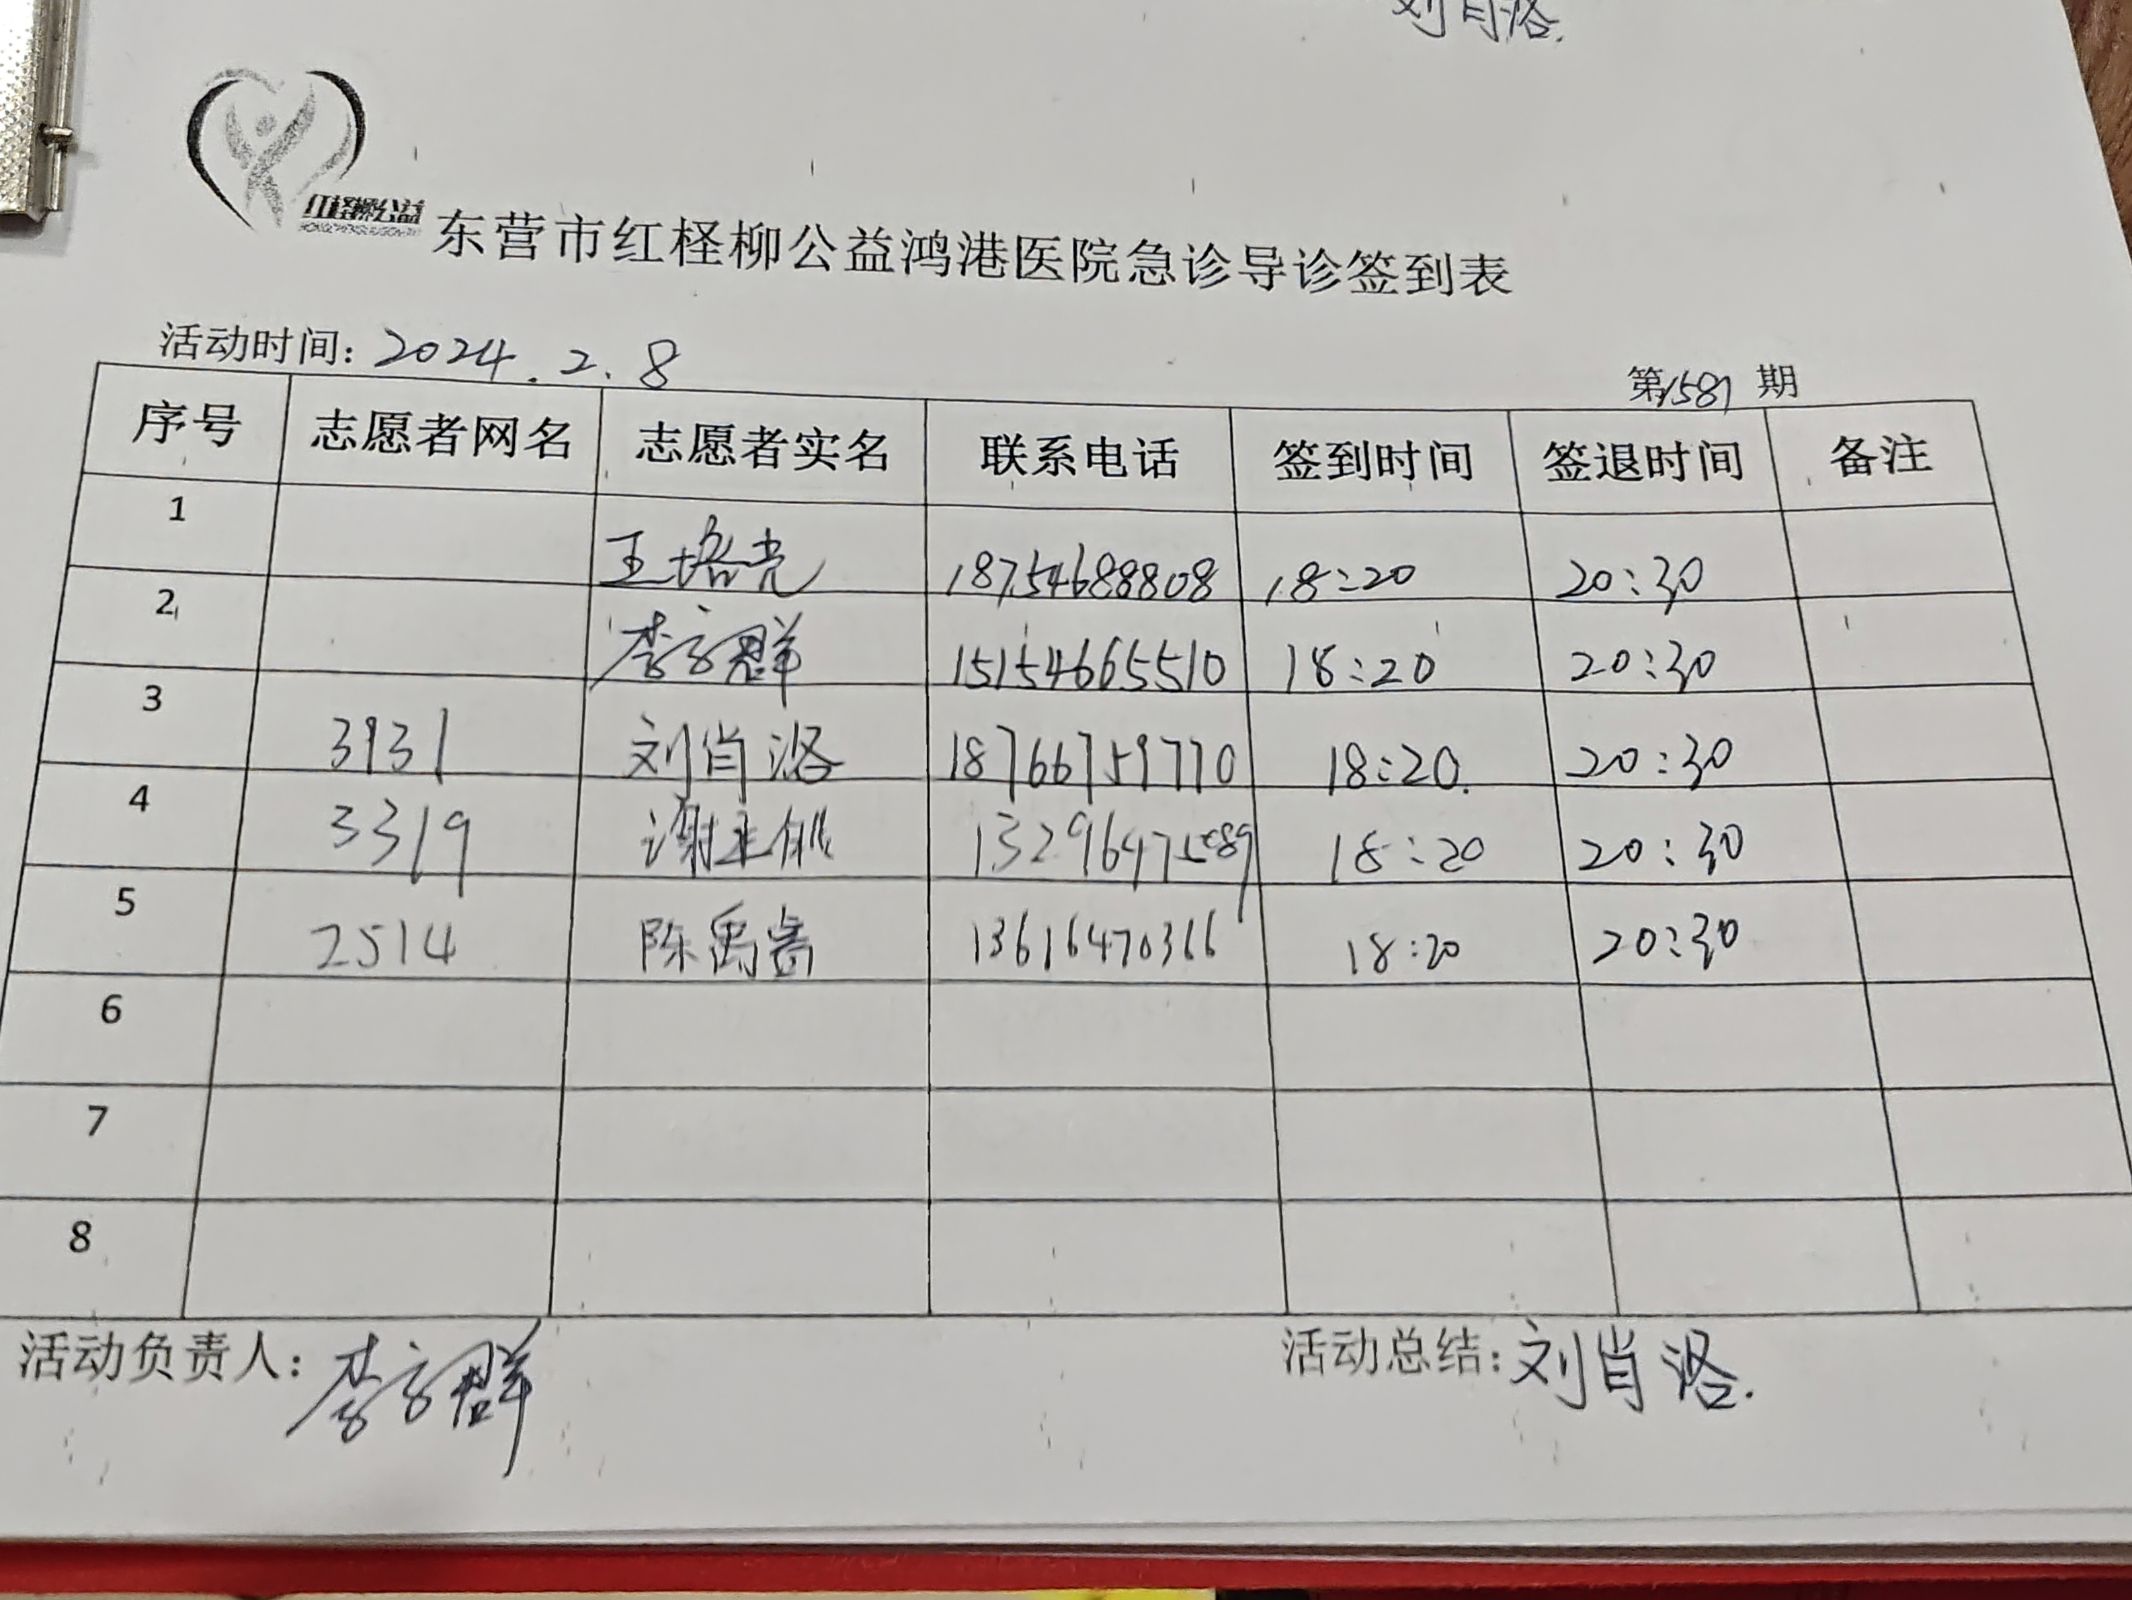 刘肖洛.
红柽柳公益
东营市红柽柳公益鸿港医院急诊导诊签到表
活动时间: 2024.2.8
第1587期
序号 志愿者网名 志愿者实名 联系电话 签到时间 签退时间 备注
1 王培光 18754688808 18:20 20:30
2 李 群 15154665510 18:20 20:30
3 3931 刘肖洛 18766759770 18:20. 20:30
4 3319 谢 18:20 20:30
5 2514 陈禹 13616470366 18:20 20:30
6
7
8
活动负责人: 李 群 活动总结: 刘肖洛.